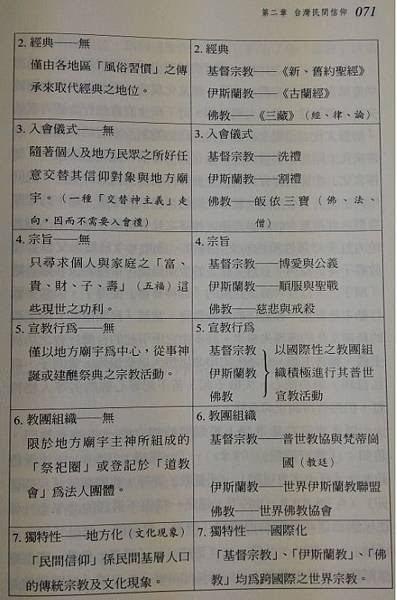 第二章 台灣民間信仰 071
2. 經典——無
僅由各地區「風俗習慣」之傳
承來取代經典之地位。
2. 經典
基督宗教——《新、舊約聖經》
伊斯蘭教——《古蘭經》
佛教——《三藏》(經、律、論)
3. 入會儀式——無
隨著個人及地方民眾之所好任
意交替其信仰對象與地方廟
宇。(一種「交替神主義」走
向,因而不需要入會禮)
3. 入會儀式
基督宗教——洗禮
伊斯蘭教——割禮
佛教——皈依三寶(佛、法、
僧)
4. 宗旨——無
只尋求個人與家庭之「富、
貴、財、子、壽」(五福)這
些現世之功利。
4. 宗旨
基督宗教——博愛與公義
伊斯蘭教——順服與聖戰
佛教——慈悲與戒殺
5. 宣教行為——無
僅以地方廟宇為中心,從事神
誕或建醮祭典之宗教活動。
5. 宣教行為
基督宗教
伊斯蘭教
佛教
以國際性之教團組
織積極進行其普世
宣教活動
6. 教團組織——無
限於地方廟宇主神所組成的
「祭祀圈」或登記於「道教
會」為法人團體。
6. 教團組織
基督宗教——普世教協與梵蒂崗
國(教廷)
伊斯蘭教——世界伊斯蘭教聯盟
佛教——世界佛教協會
7. 獨特性——地方化(文化現象)
「民間信仰」係民間基層人口
的傳統宗教及文化現象。
7. 獨特性——國際化
「基督宗教」、「伊斯蘭教」、「佛
教」均為跨國際之世界宗教。